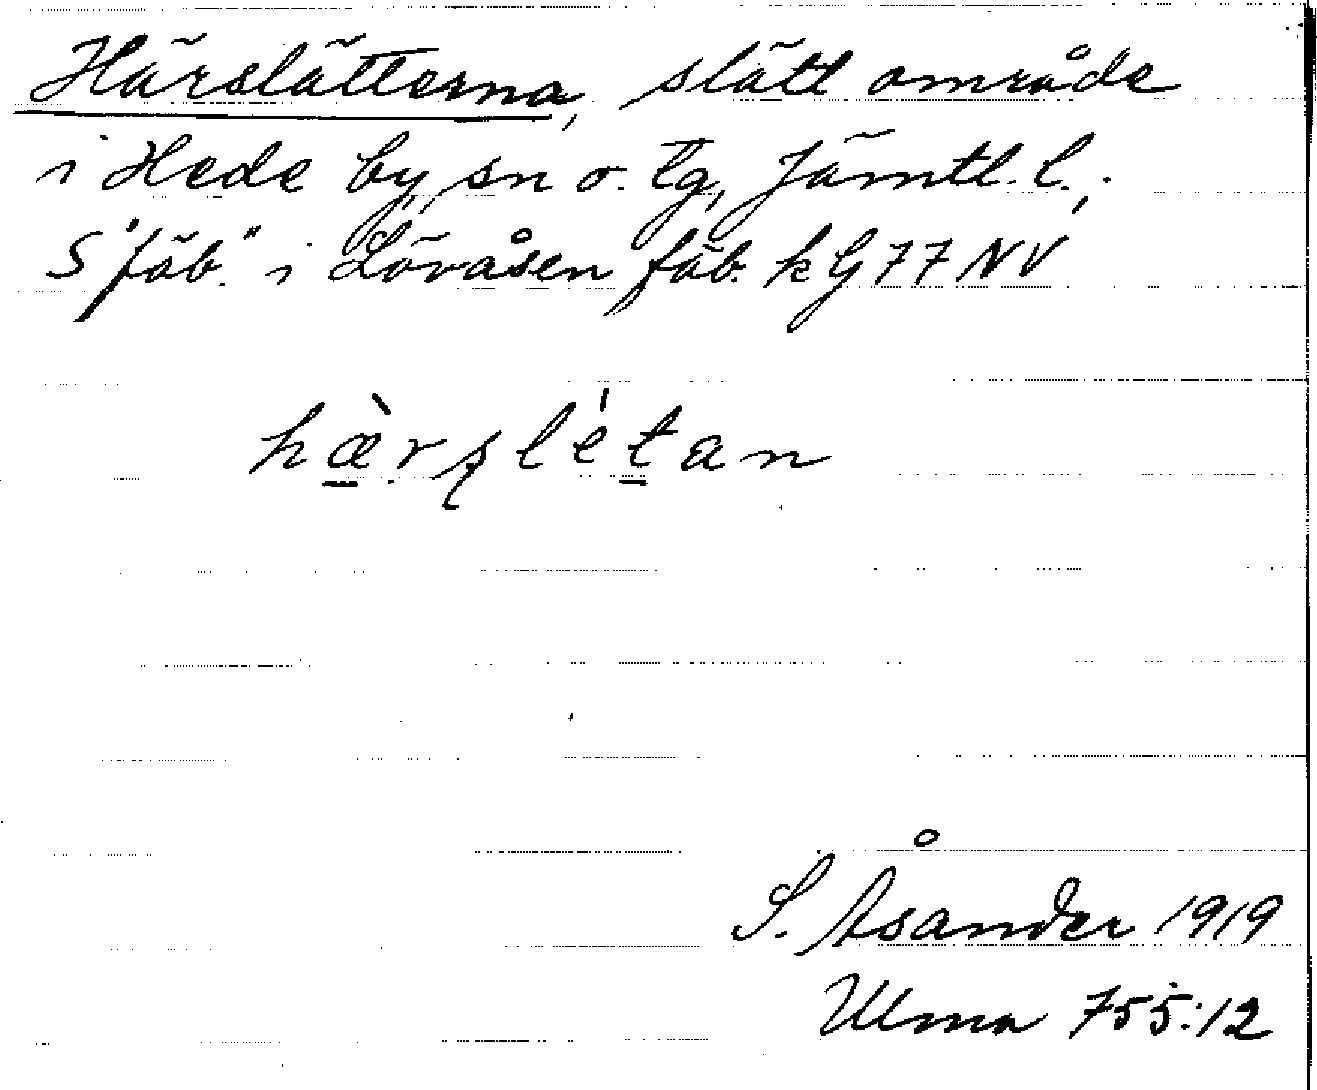 Härslätterna, slätt område
i Hede by, sn o. tg, Jämtl. l.,
S "fäb." i Lövåsen fäb. k G 77 NV
hæ̀rslétan
S. Åsander 1919
Ulma 755:12